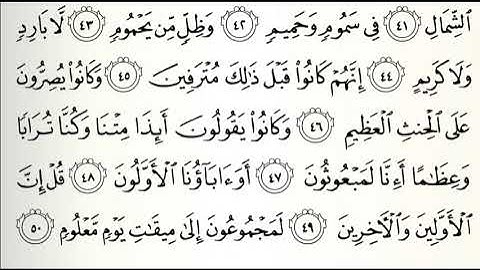 ٱلشِّمَالِ ٤١ فِى سَمُومٍ وَحَمِيمٍ ٤٢ وَظِلٍّ مِّن يَحْمُومٍ ٤٣ لَّا بَارِدٍ
وَلَا كَرِيمٍ ٤٤ إِنَّهُمْ كَانُوا۟ قَبْلَ ذَٰلِكَ مُتْرَفِينَ ٤٥ وَكَانُوا۟ يُصِرُّونَ
عَلَى ٱلْحِنثِ ٱلْعَظِيمِ ٤٦ وَكَانُوا۟ يَقُولُونَ أَئِذَا مِتْنَا وَكُنَّا تُرَابًا
وَعِظَٰمًا أَءِنَّا لَمَبْعُوثُونَ ٤٧ أَوَءَابَآؤُنَا ٱلْأَوَّلُونَ ٤٨ قُلْ إِنَّ
ٱلْأَوَّلِينَ وَٱلْـَٔاخِرِينَ ٤٩ لَمَجْمُوعُونَ إِلَىٰ مِيقَٰتِ يَوْمٍ مَّعْلُومٍ ٥٠